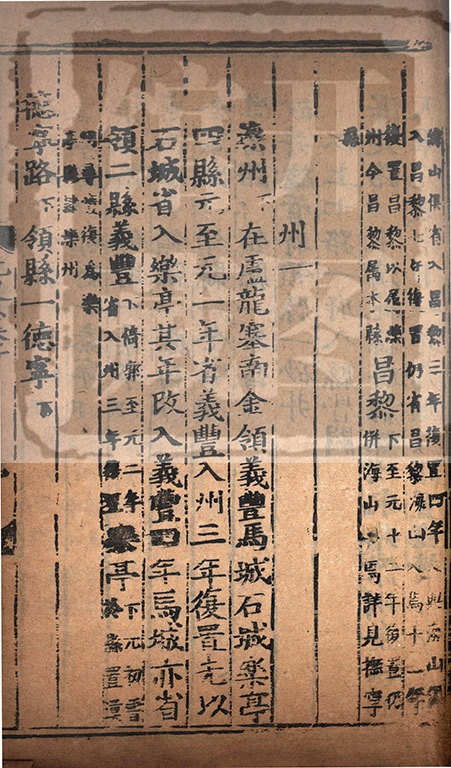 海山俱省入昌黎三年復置四年又與海山俱
入昌黎七年復置仍省昌黎海山入焉十二年
復置昌黎以屬灤
州今昌黎屬本縣
昌黎
下至元十二年復置仍
併海山入焉詳見撫寧
縣
州一
灤州下在盧龍塞南金領義豐馬城石城樂亭
四縣元至元二年省義豐入州三年復置先以
石城省入樂亭其年改入義豐四年馬城亦省
領二縣義豐
下倚郭至元二年
省入州三年復置
樂亭
下元初嘗
於縣置溟
州尋廢復為樂
亭縣隸灤州
德寧路下領縣一德寧下